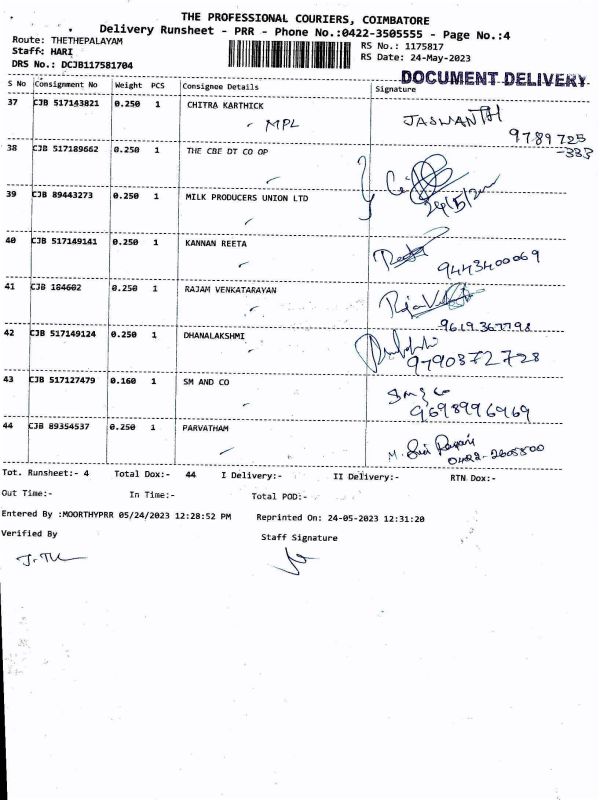 THE PROFESSIONAL COURIERS, COIMBATORE
Delivery Runsheet - PRR - Phone No.:0422-3505555 - Page No.:4
Route: THETHEPALAYAM
Staff: HARI
RS No.: 1175817
RS Date: 24-May-2023
DRS No.: DCJB117581704
DOCUMENT DELIVERY
S No Consignment No Weight PCS Consignee Details Signature
37 CJB 517143821 0.250 1 CHITRA KARTHICK JASWANTH
MPL 9789725
-333
38 CJB 517189662 0.250 1 THE CBE DT CO OP
39 CJB 89443273 0.250 1 MILK PRODUCERS UNION LTD
40 CJB 517149141 0.250 1 KANNAN REETA
9443400069
41 CJB 184602 0.250 1 RAJAM VENKATARAYAN
9619367798
42 CJB 517149124 0.250 1 DHANALAKSHMI
9790372728
43 CJB 517127479 0.160 1 SM AND CO Sm & Co
9698996969
44 CJB 89354537 0.250 1 PARVATHAM
0422-2605800
Tot. Runsheet:- 4 Total Dox:- 44 I Delivery:- II Delivery:- RTN Dox:-
Out Time:- In Time:- Total POD:-
Entered By :MOORTHYPRR 05/24/2023 12:28:52 PM Reprinted On: 24-05-2023 12:31:20
Verified By Staff Signature